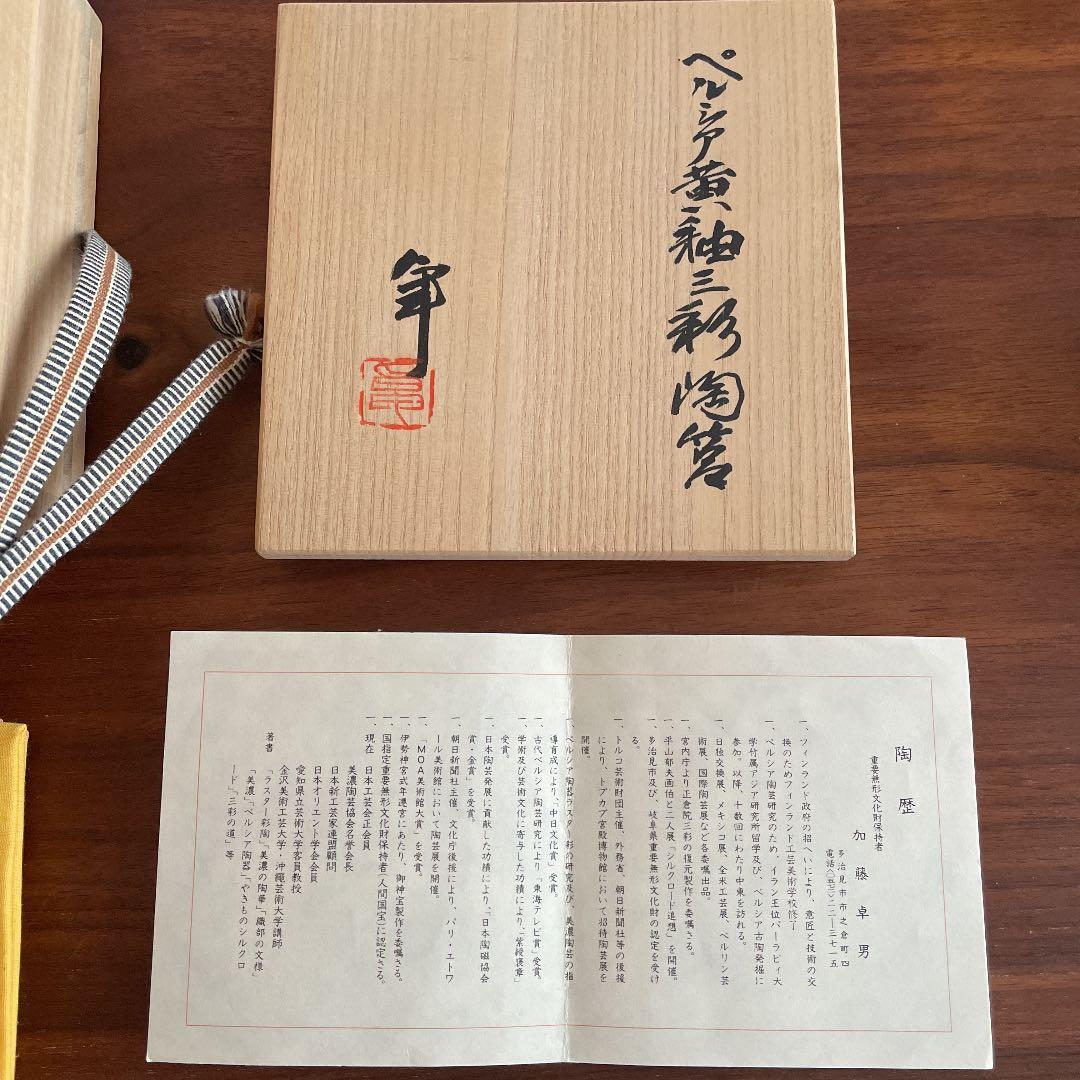 ペルシア黄釉三彩陶筥
陶歴
重要無形文化財保持者
加藤卓男
多治見市市之倉町四
電話〈〇五七二〉二二―三七一五
一、フィンランド政府の招へいにより、意匠と技術の交
換のためフィンランド工芸美術学校修了
一、ペルシア陶芸研究のため、イラン王位パーラビィ大
学付属アジア研究所留学及び、ペルシア古陶発掘に
参加。以降、十数回にわたり中東を訪れる。
一、日独交換展、メキシコ展、全米工芸展、ベルリン芸
術展、国際陶芸展など各委嘱出品。
一、宮内庁より正倉院三彩の復元製作を委嘱さる。
一、平山郁夫画伯と二人展「シルクロード追想」を開催。
一、多治見市及び、岐阜県重要無形文化財の認定を受け
る。
一、トルコ芸術財団主催、外務省、朝日新聞社等の後援
により、トプカプ宮殿博物館において招待陶芸展を
開催。
一、ペルシア陶器ラスター彩の研究及び、美濃陶芸の指
導育成により「中日文化賞」受賞。
一、古代ペルシア陶芸研究により「東海テレビ賞」受賞。
一、学術及び芸術文化に寄与した功績により、「紫綬褒章」
受賞。
一、日本陶芸発展に貢献した功績により、「日本陶磁協会
賞・金賞」を受賞。
一、朝日新聞社主催、文化庁後援により、パリ・エトワ
ール美術館において陶芸展を開催。
一、「MOA美術館大賞」を受賞。
一、伊勢神宮式年遷宮にあたり、御神宝製作を委嘱さる。
一、国指定重要無形文化財保持者(人間国宝)に認定さる。
一、現在 日本工芸会正会員
美濃陶芸協会名誉会長
日本新工芸家連盟顧問
日本オリエント学会会員
愛知県立芸術大学客員教授
金沢美術工芸大学・沖縄芸術大学講師
著書 「ラスター彩陶」「美濃の陶華」「織部の文様」
「美濃」「ペルシア陶器」「やきものシルクロ
ード」「三彩の道」等